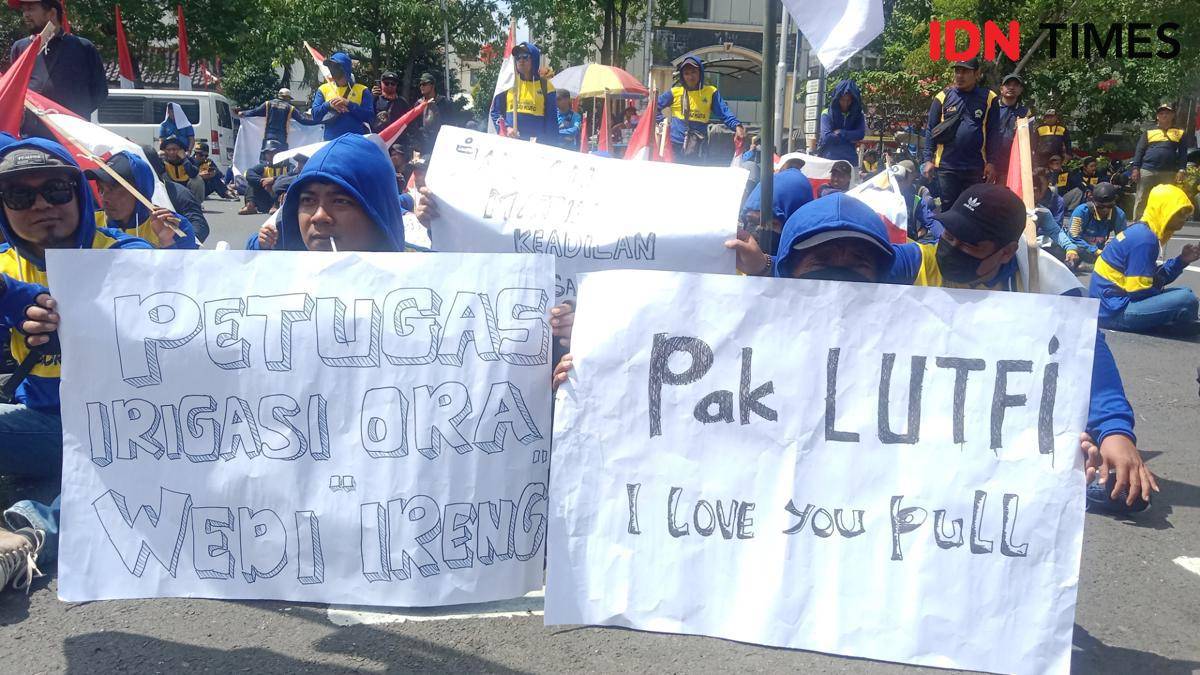 IDN TIMES
KEADILAN
PETUGAS
IRIGASI ORA
WEDI IRENG
Pak LUTFi
I LOVE YOU PULL